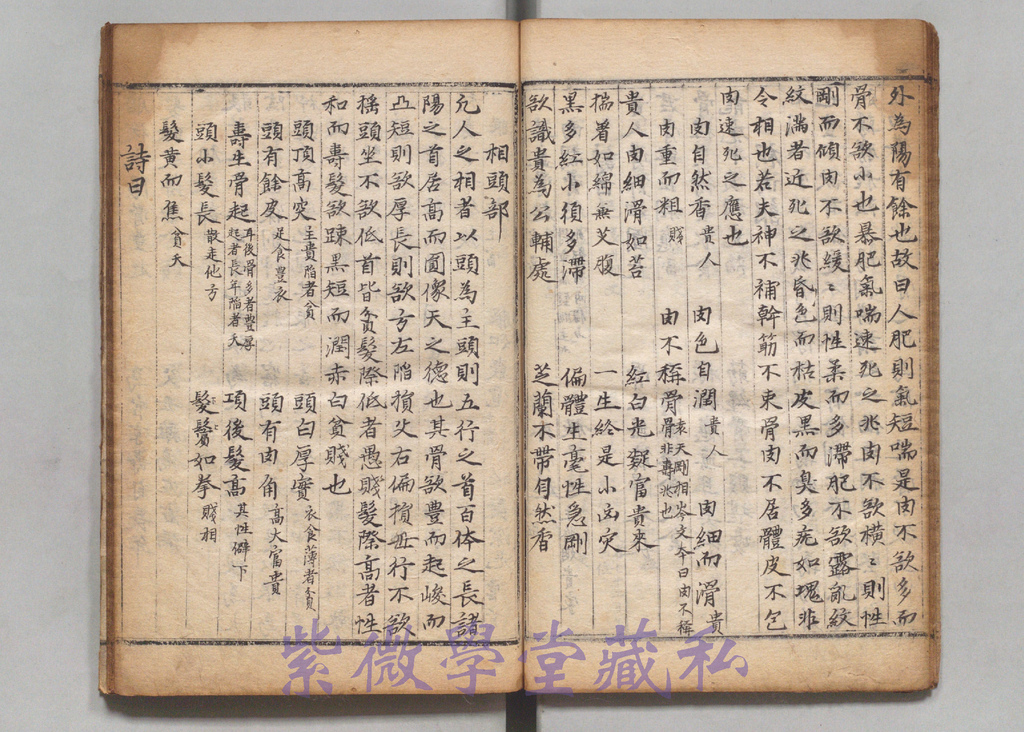 外為陽有餘也故曰人肥則氣短喘是肉不欲多而
骨不欲小也暴肥氣喘速死之兆肉不欲橫〻則性
剛而傾肉不欲緩〻則性柔而多滯肥不欲露亂紋
紋滿者近死之兆昏色而枯皮黑而臭多疣如塊非
令相也若夫神不補幹筋不束骨肉不居體皮不包
肉速死之應也
肉自然香 貴人 肉色自潤 貴人 肉細而滑 貴
肉重而粗 賤 肉不稱骨 袁天剛相岑文本曰肉不稱骨非壽兆也
貴人肉細滑如苔 紅白光凝富貴來
揣着如綿無艾腹 一生終是小凶灾
黑多紅小須多滯 偏體生毫性急剛
欲識貴為公輔處 芝蘭不帶自然香
相頭部
凢人之相者以頭為主頭則五行之首百体之長諸
陽之首居高而圎像天之德也其骨欲豊而起峻而
凸短則欲厚長則欲方左陷損父右偏損母行不欲
搖頭坐不欲低首皆貧髮際低者愚賤髮際高者性
和而壽髮欲踈黑短而潤赤白貧賤也
頭頂高突 主貴陷者貧 頭白厚實 衣食薄者貧
頭有餘皮 足食豊衣 頭有肉角 高大富貴
壽生骨起 耳後骨多者豐厚起者長年陷者夭 項後髮高 其性僻下
頭小髮長 散走他方 髮鬢如拳 賤相
髮黄而焦 貧夭
詩曰
紫微學堂藏私